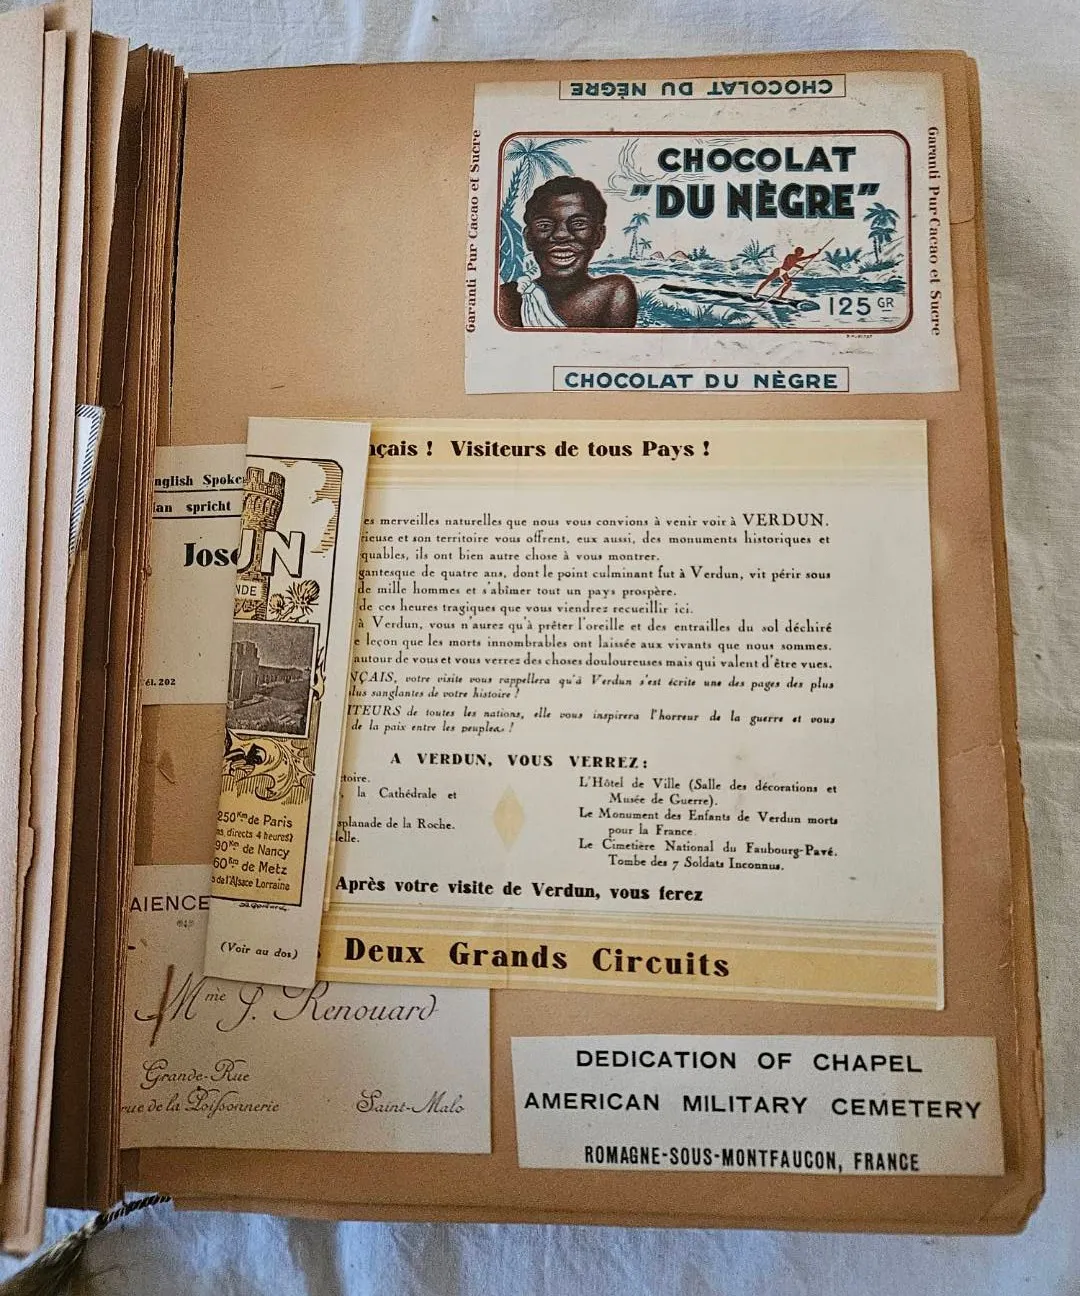 CHOCOLAT DU NÈGRE
Garanti Pur Cacao et Sucre
CHOCOLAT
"DU NÈGRE"
125 GR
Garanti Pur Cacao et Sucre
CHOCOLAT DU NÈGRE
nglish Spoke
an spricht
Jose
él. 202
UN
NDE
250 Km de Paris
s directs 4 heures)
90 Km de Nancy
60 Km de Metz
s de l'Alsace Lorraine
(Voir au dos)
nçais ! Visiteurs de tous Pays !
es merveilles naturelles que nous vous convions à venir voir à VERDUN.
rieuse et son territoire vous offrent, eux aussi, des monuments historiques et
quables, ils ont bien autre chose à vous montrer.
gantesque de quatre ans, dont le point culminant fut à Verdun, vit périr sous
de mille hommes et s'abîmer tout un pays prospère.
de ces heures tragiques que vous viendrez recueillir ici.
à Verdun, vous n'aurez qu'à prêter l'oreille et des entrailles du sol déchiré
e leçon que les morts innombrables ont laissée aux vivants que nous sommes.
autour de vous et vous verrez des choses douloureuses mais qui valent d'être vues.
NÇAIS, votre visite vous rappellera qu'à Verdun s'est écrite une des pages des plus
lus sanglantes de votre histoire !
ITEURS de toutes les nations, elle vous inspirera l'horreur de la guerre et vous
de la paix entre les peuples !
A VERDUN, VOUS VERREZ :
toire.
, la Cathédrale et
splanade de la Roche.
elle.
L'Hôtel de Ville (Salle des décorations et
Musée de Guerre).
Le Monument des Enfants de Verdun morts
pour la France.
Le Cimetière National du Faubourg-Pavé.
Tombe des 7 Soldats Inconnus.
Après votre visite de Verdun, vous ferez
s Deux Grands Circuits
AIENCE
Mme J. Renouard
Grande-Rue
rue de la Poissonnerie
Saint-Malo
DEDICATION OF CHAPEL
AMERICAN MILITARY CEMETERY
ROMAGNE-SOUS-MONTFAUCON, FRANCE